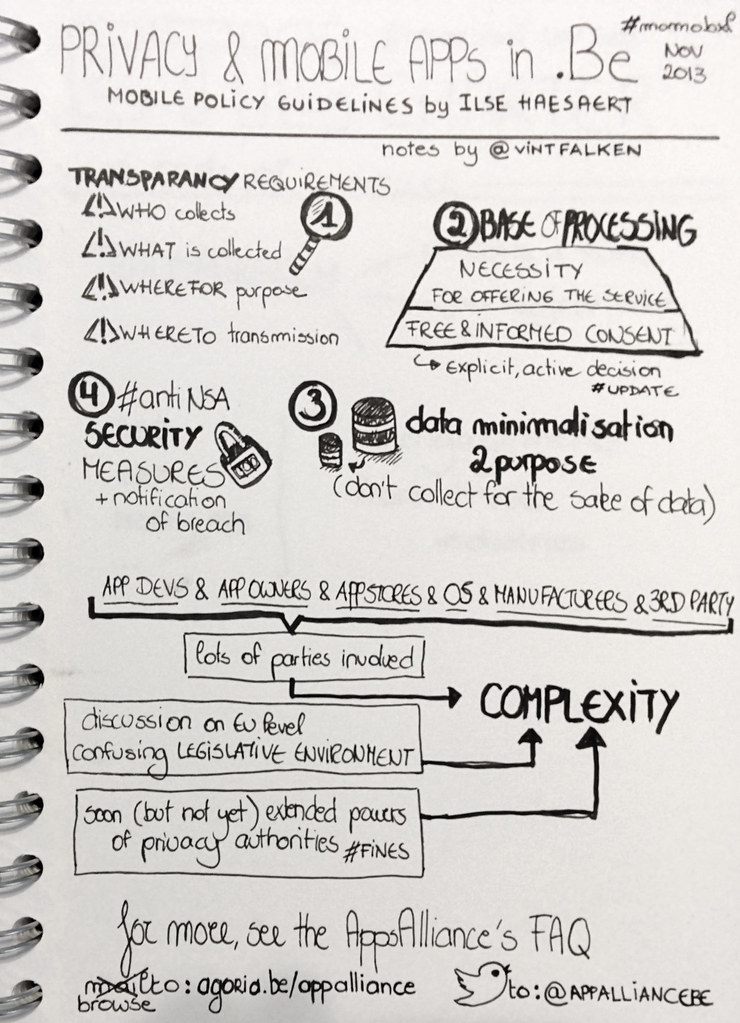 #momobxl
PRIVACY & MOBILE APPS in .Be
NOV
2013
MOBILE POLICY GUIDELINES by ILSE HAESAERT
notes by @VINTFALKEN
TRANSPARANCY REQUIREMENTS
1
WHO collects
WHAT is collected
WHEREFOR purpose
WHERETO transmission
2 BASE OF PROCESSING
NECESSITY
FOR OFFERING THE SERVICE
FREE & INFORMED CONSENT
explicit, active decision
#UPDATE
4 #antiNSA
SECURITY
MEASURES
+ notification
of breach
3
data minimalisation
2purpose
(don't collect for the sake of data)
APP DEVS & APP OWNERS & APPSTORES & OS & MANUFACTUREERS & 3RD PARTY
lots of parties involved
COMPLEXITY
discussion on EU level
confusing LEGISLATIVE ENVIRONMENT
soon (but not yet) extended powers
of privacy authorities #FINES
for more, see the AppsAlliance's FAQ
mailto: agoria.be/appalliance
browse
to: @APPALLIANCEBE